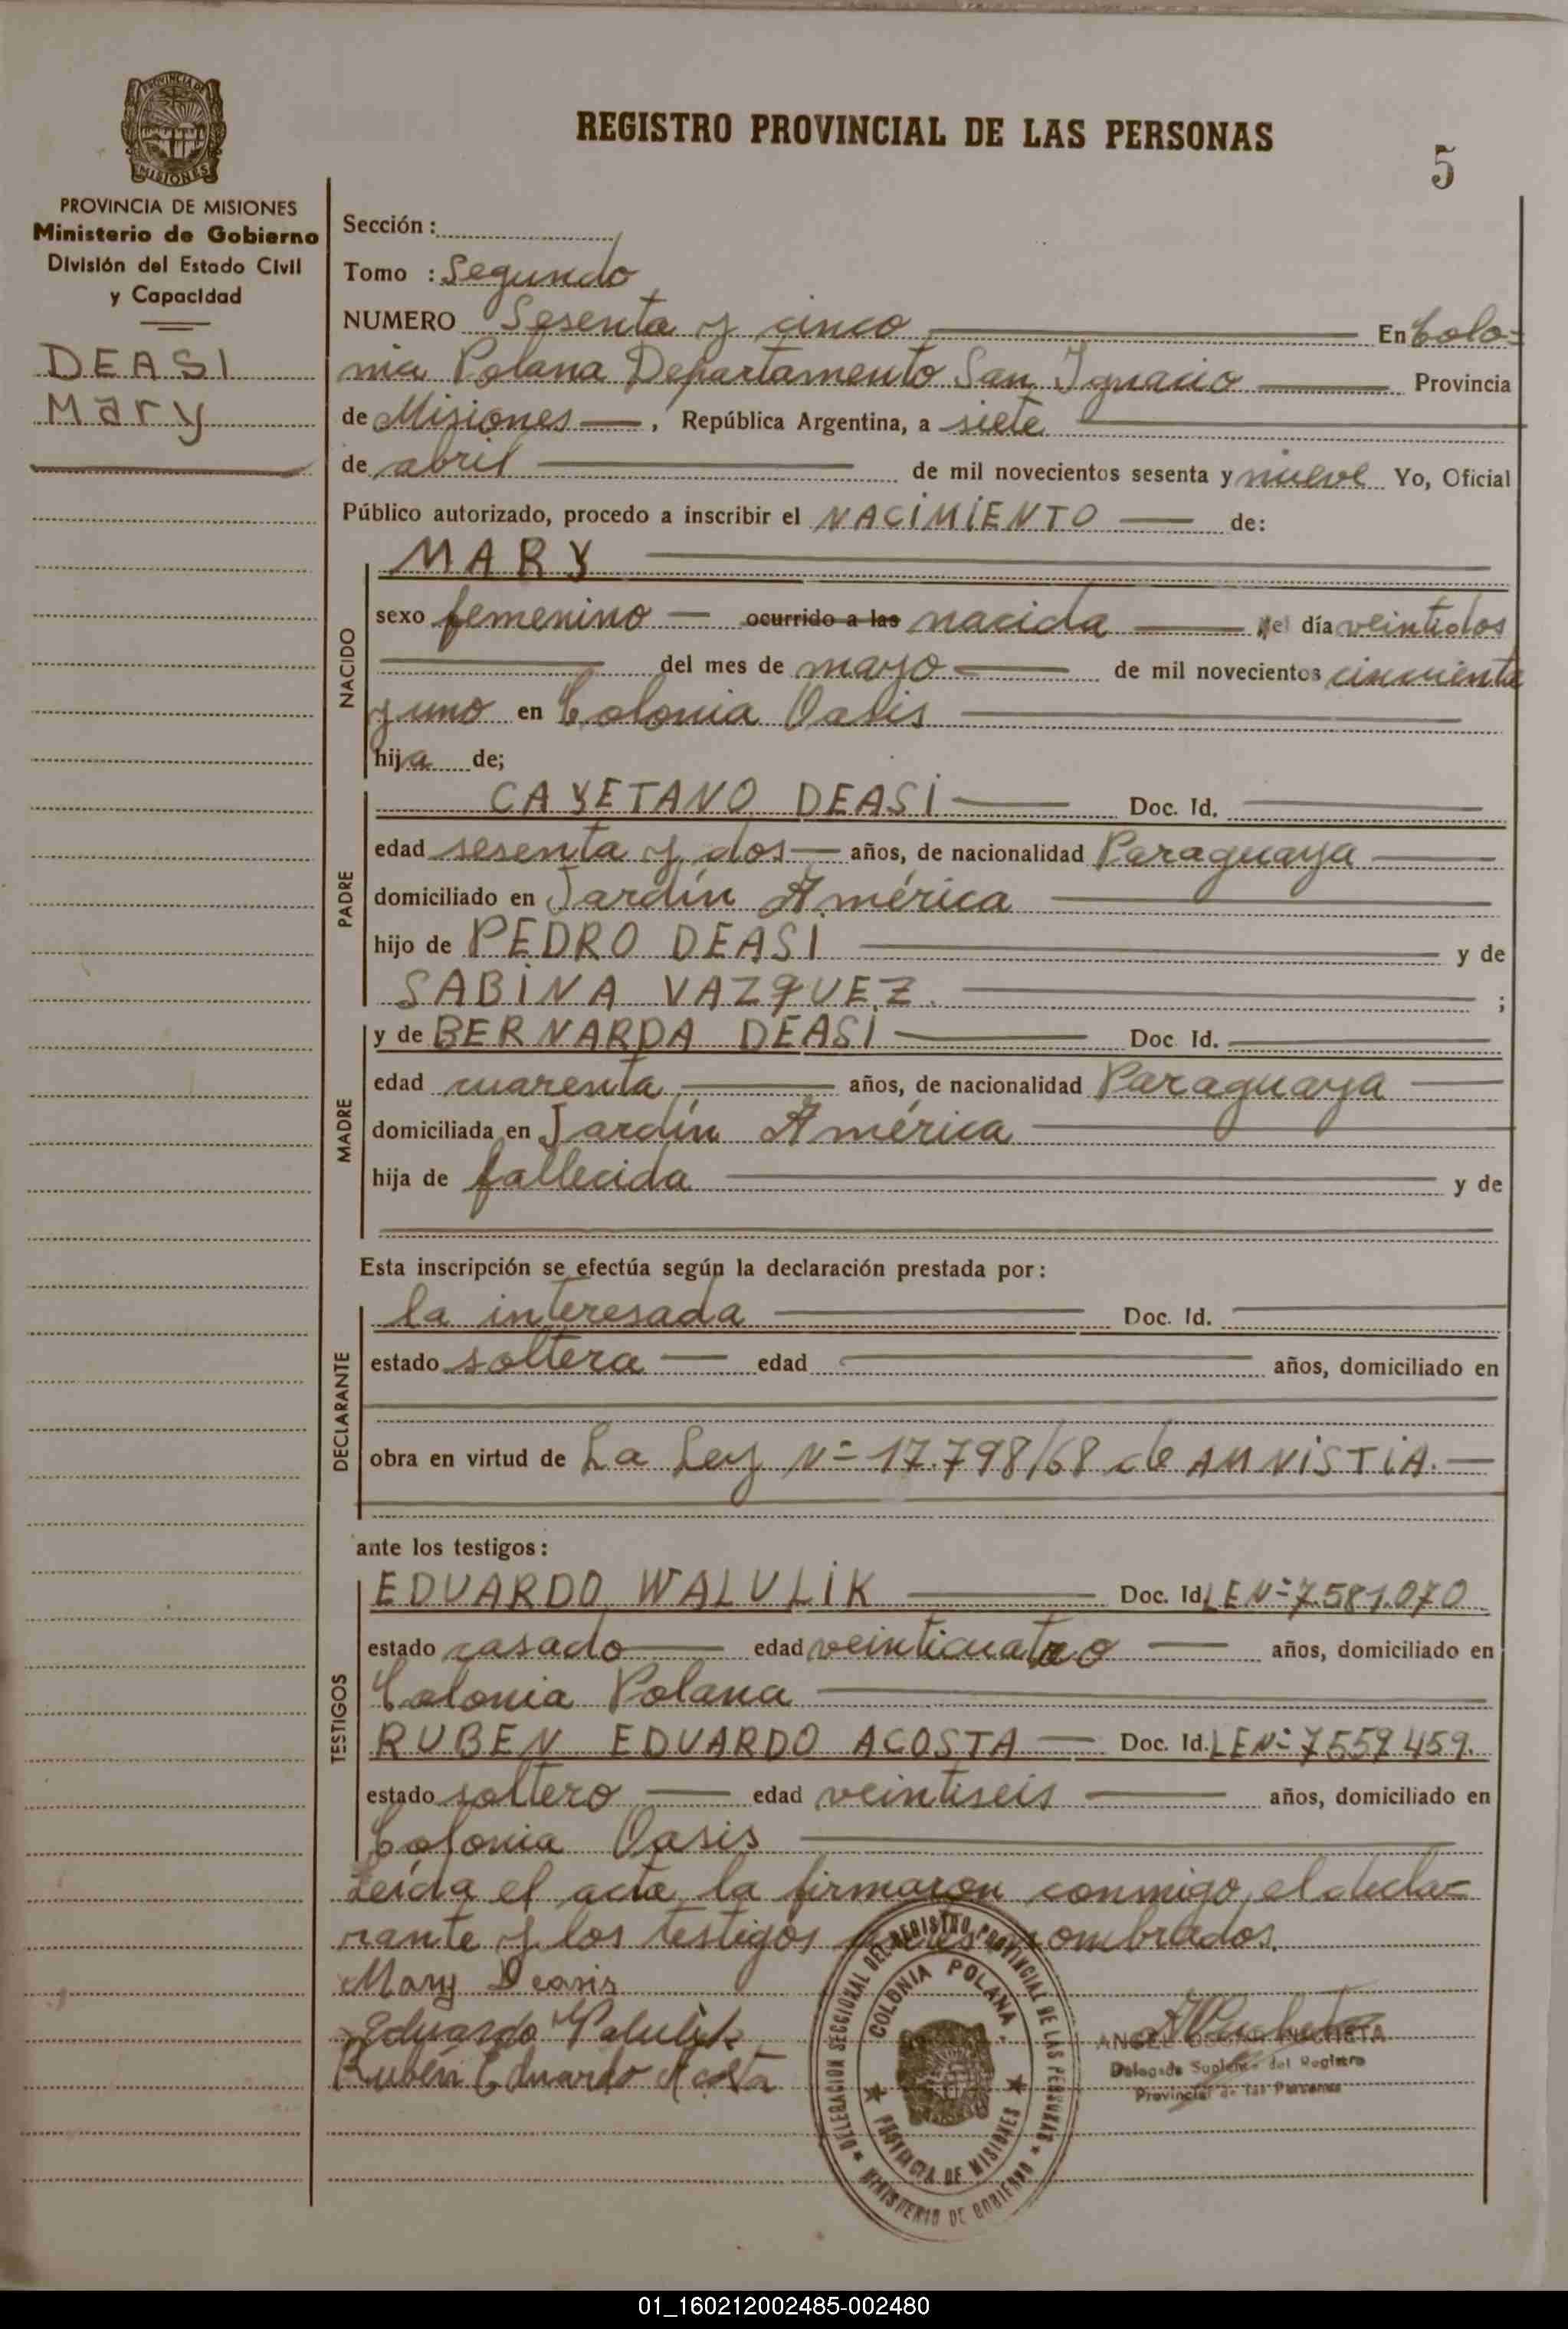 REGISTRO PROVINCIAL DE LAS PERSONAS
5
PROVINCIA DE MISIONES
Ministerio de Gobierno
División del Estado Civil
y Capacidad
DEASI
Mary
Sección :
Tomo : Segundo
NUMERO Sesenta y cinco En Colo=
nia Polana Departamento San Ignacio Provincia
de Misiones , República Argentina, a siete
de abril de mil novecientos sesenta y nueve Yo, Oficial
Público autorizado, procedo a inscribir el NACIMIENTO de:
NACIDO
MARY
sexo femenino ocurrido a las nacida el día veintidos
del mes de mayo de mil novecientos cincuenta
y uno en Colonia Oasis
hija de;
PADRE
CAYETANO DEASI Doc. Id.
edad sesenta y dos años, de nacionalidad Paraguaya
domiciliado en Jardín América
hijo de PEDRO DEASI y de
SABINA VAZQUEZ. ;
MADRE
y de BERNARDA DEASI Doc Id.
edad cuarenta años, de nacionalidad Paraguaya
domiciliada en Jardín América
hija de fallecida y de
Esta inscripción se efectúa según la declaración prestada por:
DECLARANTE
la interesada Doc. Id.
estado soltera edad años, domiciliado en
obra en virtud de La Ley Nº 17.798/68 de AMNISTIA.
ante los testigos:
TESTIGOS
EDUARDO WALULIK Doc. Id. LE Nº 7.581.070
estado casado edad veinticuatro años, domiciliado en
Colonia Polana
RUBEN EDUARDO ACOSTA Doc. Id. LE Nº 7559.459.
estado soltero edad veintiseis años, domiciliado en
Colonia Oasis
Leída el acta la firmaron conmigo, el decla=
rante y los testigos nombrados.
Mary Deasis
Eduardo Walulik
Rubén Eduardo Acosta
DELEGACION SECCIONAL DEL REGISTRO PROVINCIAL DE LAS PERSONAS
COLONIA POLANA
PROVINCIA DE MISIONES
MINISTERIO DE GOBIERNO
Delegado Suplente del Registro
Provincial de las Personas
01_160212002485-002480